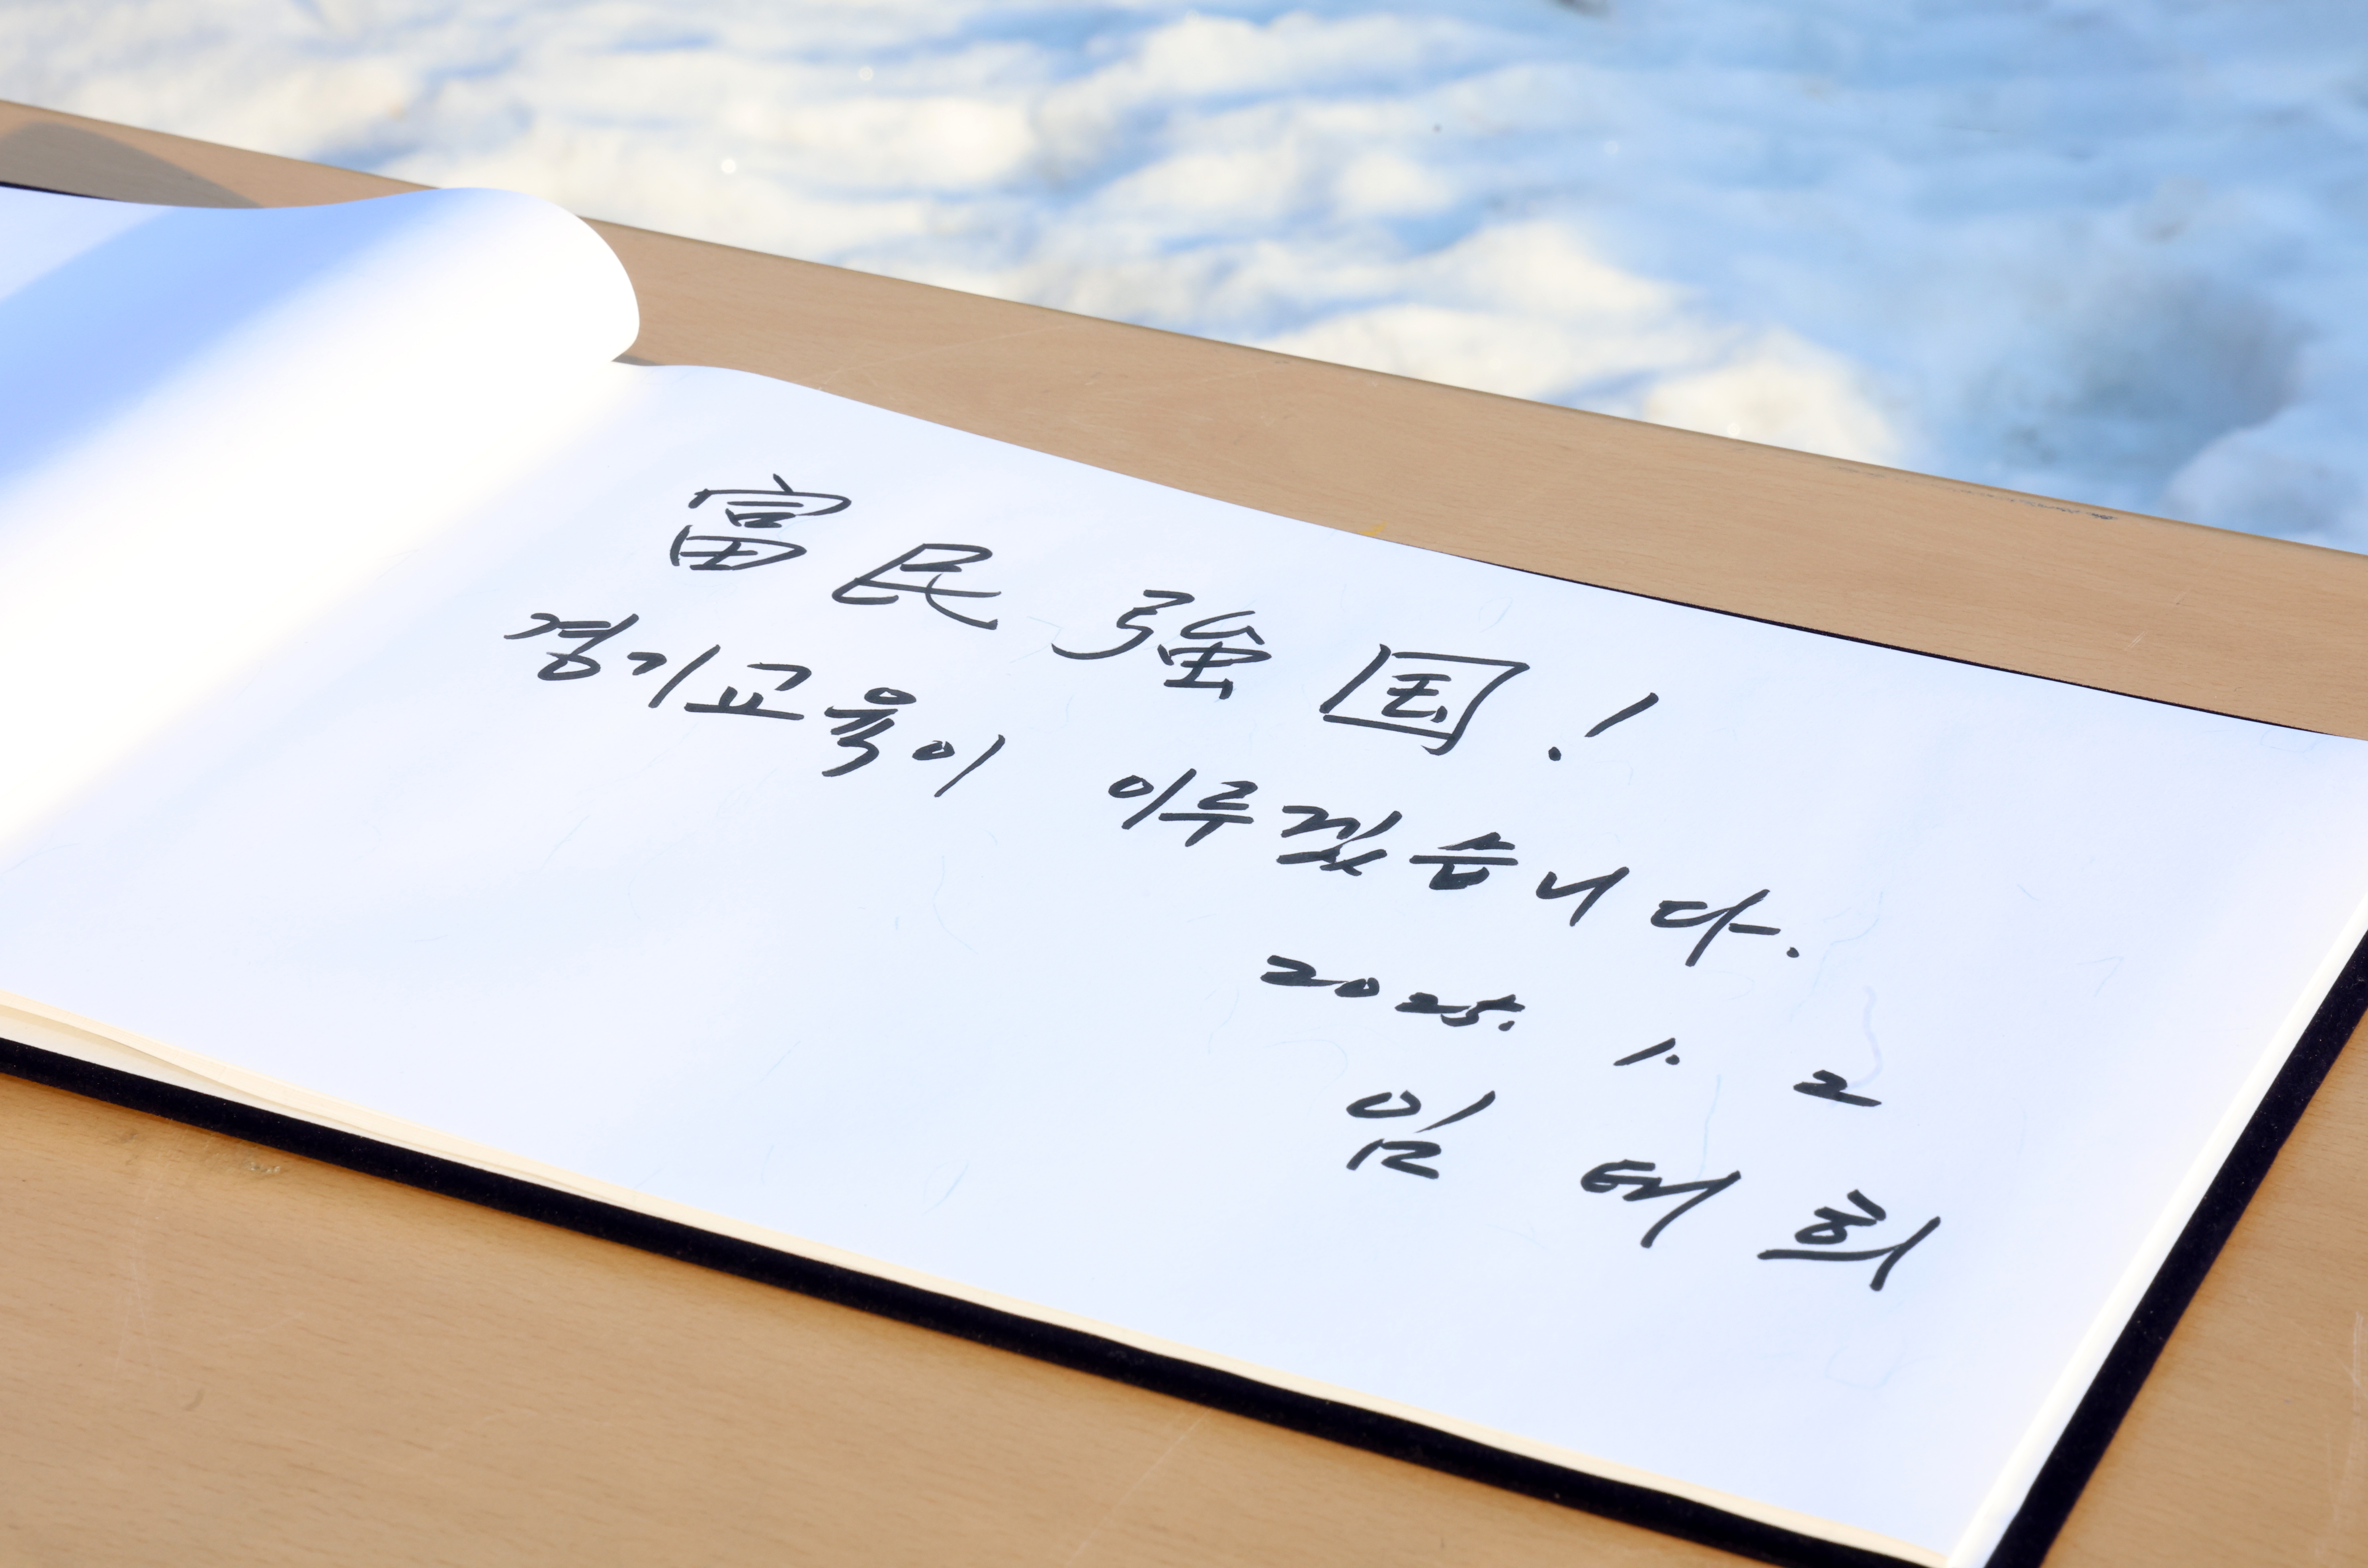 富民強国!
경기교육이 이루겠습니다.
2025. 1. 2
임태희